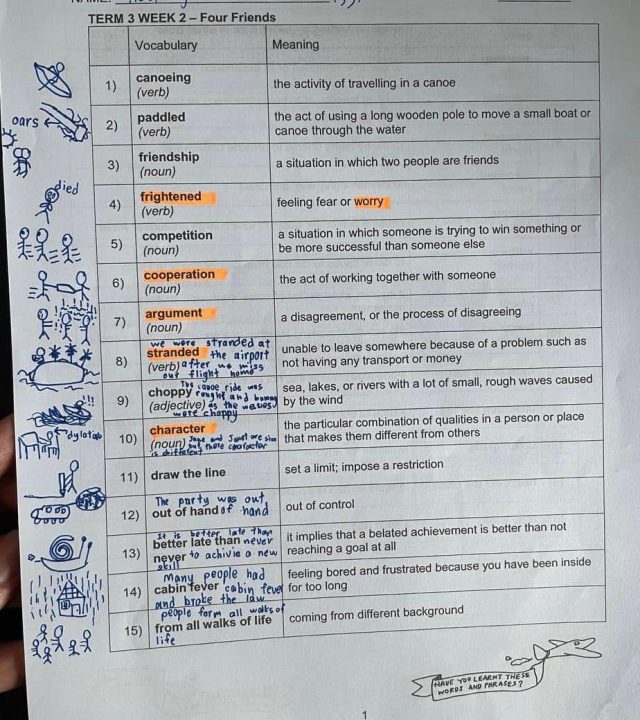 TERM 3 WEEK 2 – Four Friends
Vocabulary
Meaning
1)
canoeing
(verb)
the activity of travelling in a canoe
oars
2)
paddled
(verb)
the act of using a long wooden pole to move a small boat or
canoe through the water
3)
friendship
(noun)
a situation in which two people are friends
died
4)
frightened
(verb)
feeling fear or worry
5)
competition
(noun)
a situation in which someone is trying to win something or
be more successful than someone else
6)
cooperation
(noun)
the act of working together with someone
7)
argument
(noun)
a disagreement, or the process of disagreeing
8)
we were stranded at
stranded the airport
(verb) after we miss
out flight home
unable to leave somewhere because of a problem such as
not having any transport or money
9)
The canoe ride was
choppy rought and bumpy
(adjective) as the waves
were choppy
sea, lakes, or rivers with a lot of small, rough waves caused
by the wind
10)
character
(noun) and are
but there character
is different
the particular combination of qualities in a person or place
that makes them different from others
11)
draw the line
set a limit; impose a restriction
12)
The party was out
out of hand of hand
out of control
13)
It is better late than
better late than never
never to achivie a new
skill
it implies that a belated achievement is better than not
reaching a goal at all
14)
Many people had
cabin fever cabin fever
and broke the law
feeling bored and frustrated because you have been inside
for too long
15)
people form all walks of
from all walks of life
life
coming from different background
HAVE YOU LEARNT THESE
WORDS AND PHRASES?
1